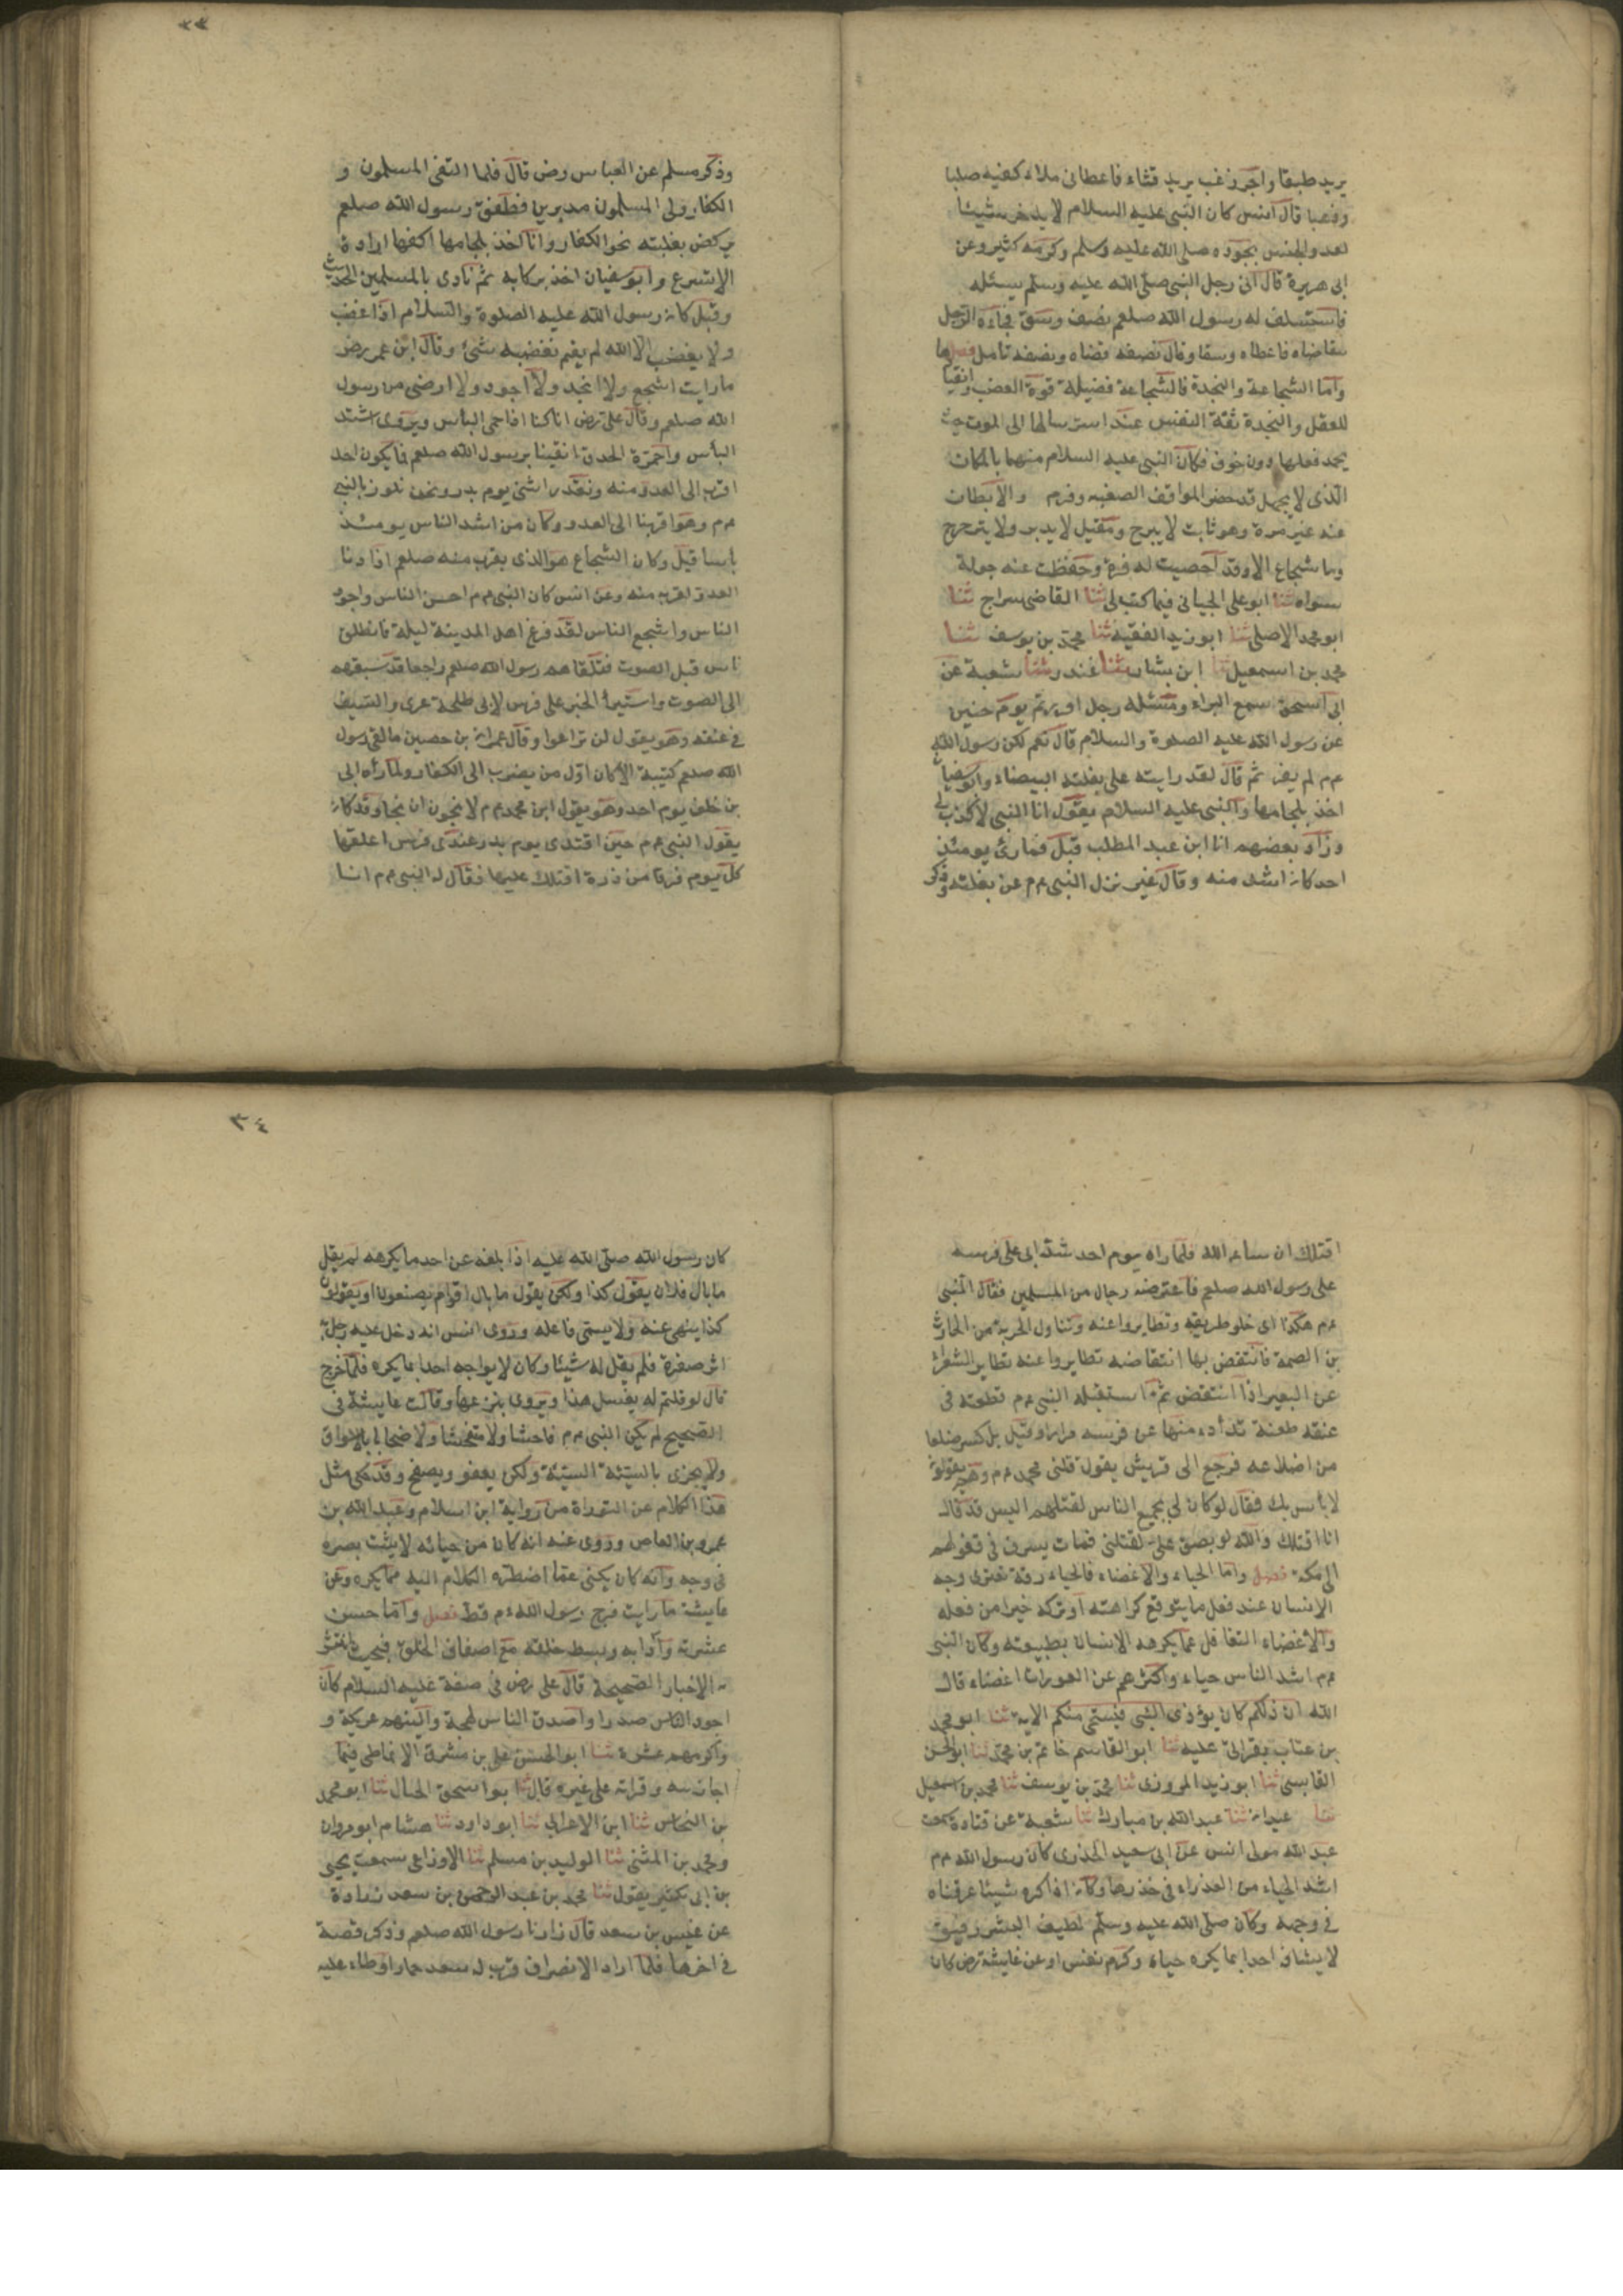 يريد طبقا واجر زغب يريد قثاء فاعطانى ملاء كفيه صليا
وذهبا قال انس كان النبى عليه السلام لا يدخر شيئا
لغد والجنس بجوده صلى الله عليه وسلم وكرمه كثير وعن
ابى هريرة قال اتى رجل النبى صلى الله عليه وسلم يسئله
فاستسلف له رسول الله صلعم نصف وسق فجاءه الرجل
يتقاضاه فاعطاه وسقا وقال نصفه قضاه ونصفه نامل فصل
واما الشجاعة والنجدة فالشجاعة فضيلة قوة الغضب وانقيادها
للعقل والنجدة ثقة النفس عند استرسالها الى الموت حيث
يحمد فعلها دون خوف فكان النبى عليه السلام منهما بالمكان
الذى لا يجهل قد حضر المواقف الصعبه وفرم والابطات
عنه غير مرة وهو ثابت لا يبرح ومقبل لا يدبر ولا يتزحزح
وما شجاع الا وقد احصيت له فرة وحفظت عنه جولة
سواه ثنا ابو على الجيانى فيما كتب لى ثنا القاضى سراج ثنا
ابو محمد الاصلى ثنا ابو زيد الفقيه ثنا محمد بن يوسف ثنا
محمد بن اسمعيل ثنا ابن بشار ثنا غندر ثنا شعبة عن
ابى اسحق سمع البراء وسئله رجل افررتم يوم حنين
عن رسول الله عليه الصلوة والسلام قال نعم لكن رسول الله
عم لم يفر ثم قال لقد رايته على بغلته البيضاء وابو سفيان
اخذ بلجامها والنبى عليه السلام يقول انا النبى لا كذب
وزاد بعضهم انا ابن عبد المطلب قيل فما رئ يومئذ
احد كان اشد منه وقال غيره نزل النبى عم عن بغلته وذكر
٣٣
وذكر مسلم عن العباس رض قال فلما التقى المسلمون و
الكفار ولى المسلمون مدبرين فطفق رسول الله صلعم
يركض بغلته نحو الكفار وانا اخذ بلجامها اكفها ارادة
الا تسرع وابو سفيان اخذ بركابه ثم نادى بالمسلمين الحديث
وقيل كان رسول الله عليه الصلوة والسلام اذا غضب
ولا يغضب الا لله لم يقم لغضبه شئ وقال ابن عمر رض
ما رايت اشجع ولا انجد ولا اجود ولا ارضى من رسول
الله صلعم وقال على رض انا كنا اذا حمى الباس ويروى اشتد
البأس واحمرة الحدق اتقينا برسول الله صلعم فما يكون احد
اقرب الى العدو منه ولقد راتنى يوم بدر ونحن نلوز بالنبى
عم وهو اقربنا الى العدو وكان من اشد الناس يومئذ
بأسا قيل وكان الشجاع هو الذى يقرب منه صلعم اذا دنا
العدو لقربه منه وعن انس كان النبى عم احسن الناس واجود
الناس واشجع الناس لقد فزغ اهل المدينة ليلة فانطلق
ناس قبل الصوت فتلقاهم رسول الله صلعم راجعا قد سبقهم
الى الصوت واستبرأ الخبر على فرس لابى طلحة عرى والسيف
فى عنقه وهو يقول لن تراعوا وقال عمران بن حصين ما لقى رسول
الله صلعم كتيبة الا كان اول من يضرب الى الكفار ولما رأه ابى
بن خلف يوم احد وهو يقول اين محمد عم لا نجوت ان نجا وقد كان
يقول النبى عم حين افتدى يوم بدر عندى فرس اعلفها
كل يوم فرقا من ذرة اقتلك عليها فقال له النبى عم انا
اقتلك ان ساء الله فلما راه يوم احد شد ابى على فرسه
على رسول الله صلعم فاعترضه رجال من المسلمين فقال النبى
عم هكذا اى خلو طريقه وتطايروا عنه وتناول الحربة من الحارث
بن الصمة فانتقض بها انتقاضه تطايروا عنه تطاير الشعراء
عن البعير اذا انتقض ثم استقبله النبى عم فطعنه فى
عنقه طعنة تدأدء منها عن فرسه مرارا وقيل بل كسر ضلعا
من اضلاعه فرجع الى قريش يقول قتلنى محمد عم وهم يقولون
لا بأس بك فقال لو كان لى بجميع الناس لقتلهم اليس قد قال
انا اقتلك والله لو بصق على لقتلنى فمات يسرف فى قفولهم
الى مكة فصل واما الحياء والاغضاء فالحياء رقة تعترى وجه
الانسان عند فعل ما يتوقع كراهته او تركه خيرا من فعله
والاغضاء التغافل عما يكرهه الانسان بطبيعته وكان النبى
عم اشد الناس حياء واكثرهم عن العورات اغضاء قال
الله ان ذلكم كان يؤذى النبى فيستحى منكم الاية ثنا ابو محمد
بن عتاب بقرائتى عليه ثنا ابو القاسم حاتم بن محمد ثنا ابو الحسن
القابسى ثنا ابو زيد المروزى ثنا محمد بن يوسف ثنا محمد بن اسمعيل
ثنا عبدان ثنا عبد الله بن مبارك ثنا شعبة عن قتادة سمعت
عبد الله مولى انس عن ابى سعيد الخدرى كان رسول الله عم
اشد الحياء من العذراء فى خدرها وكان اذا كره شيئا عرفناه
فى وجهه وكان صلى الله عليه وسلم لطيف البشر رقيق
لا يشافه احدا بما يكره حياء وكرم نفس او عن عايشة رض كان
٣٤
كان رسول الله صلى الله عليه اذا بلغه عن احد ما يكرهه لم يقل
ما بال فلان يقول كذا ولكن يقول ما بال اقوام يصنعون او يقولون
كذا ينهى عنه ولا يسمى فاعله وروى انس انه دخل عليه رجل به
اثر صفرة فلم يقل له شيئا وكان لا يواجه احدا بما يكره فلما خرج
قال لو قلتم له يغسل هذا ويروى ينزعها وقالت عايشة فى
الصحيح لم يكن النبى عم فاحشا ولا متفحشا ولا ضحابا بالاسواق
ولا يجزى بالسيئة السيئة ولكن يعفو ويصفح وقد حكى مثل
هذا الكلام عن التوراة من رواية ابن اسلام وعبد الله بن
عمرو بن العاص وروى عنه انه كان من حيائه لا يثبت بصره
فى وجه وانه كان يكنى عما اضطره الكلام اليه مما يكره وعن
عايشة ما رايت فرج رسول الله عم قط فصل واما حسن
عشرته وآدابه وبسط خلقه مع اصفاف الخلق فبحيث انتشر
به الاخبار الصحيحة قال على رض فى صفة عليه السلام كان
اجود الناس صدرا واصدق الناس لهجة والينهم عريكة و
واكرمهم عشرة ثنا ابو الحسن على بن مشرق الانماطى فيما
اجازنيه وقراته على غيره قال ثنا بو اسحق الحبال ثنا ابو محمد
بن النحاس ثنا ابن الاعرابى ثنا ابو داود ثنا هشام ابو مروان
ومحمد بن المثنى ثنا الوليد بن مسلم ثنا الاوزاعى سمعت يحيى
بن ابى كثير يقول ثنا محمد بن عبد الرحمن بن سعد زرارة
عن قيس بن سعد قال زارنا رسول الله صلعم وذكر قصة
فى اخرها فلما اراد الانصراف قرب له سعد حمارا وطاء عليه